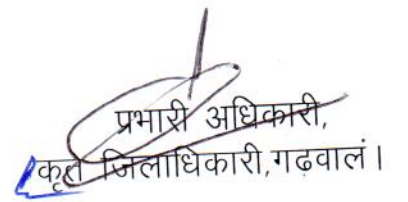 प्रभारी अधिकारी,
कृते जिलाधिकारी,गढवालं।